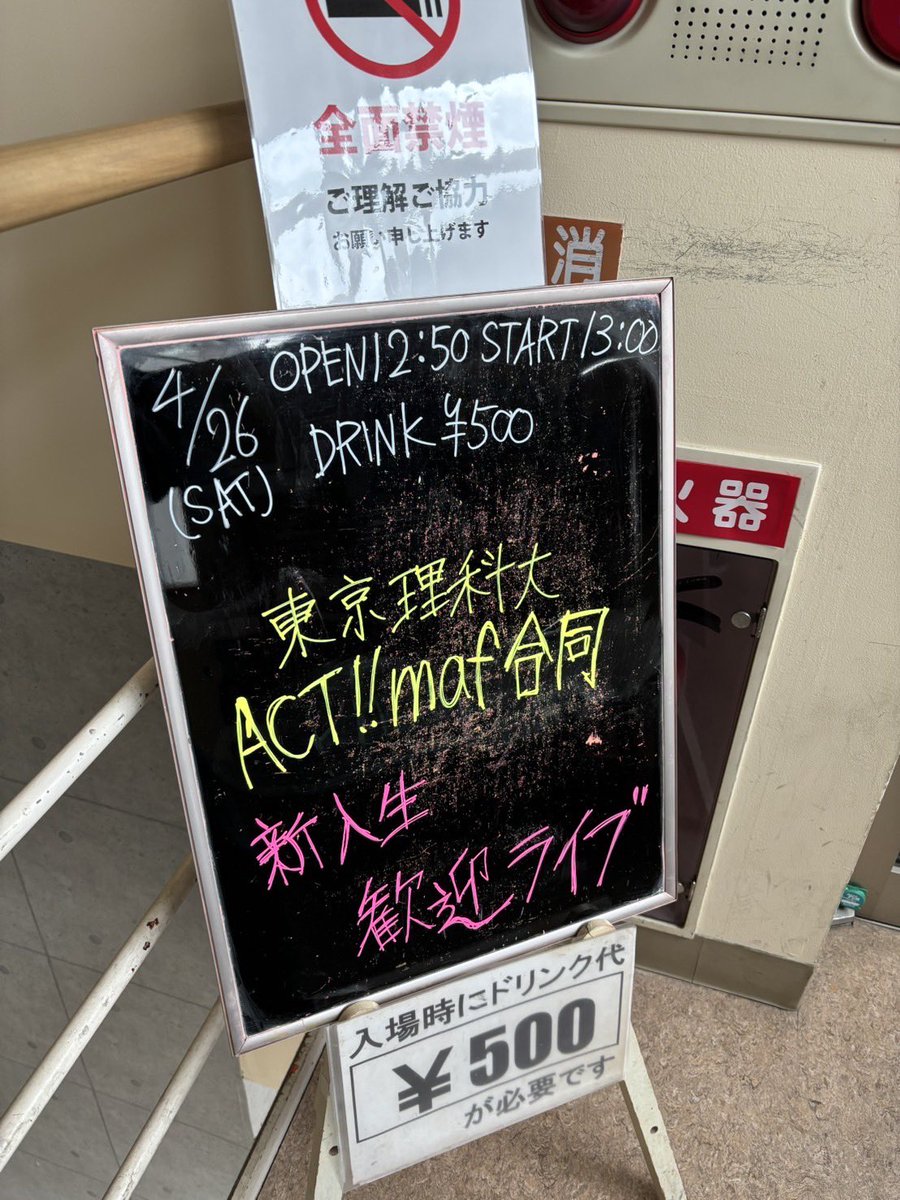 全面禁煙
ご理解ご協力
お願い申し上げます
消
火器
4/26
(SAT)
OPEN12:50 START13:00
DRINK ¥500
東京理科大
ACT!!maf合同
新入生
歓迎ライブ
入場時にドリンク代
¥500
が必要です